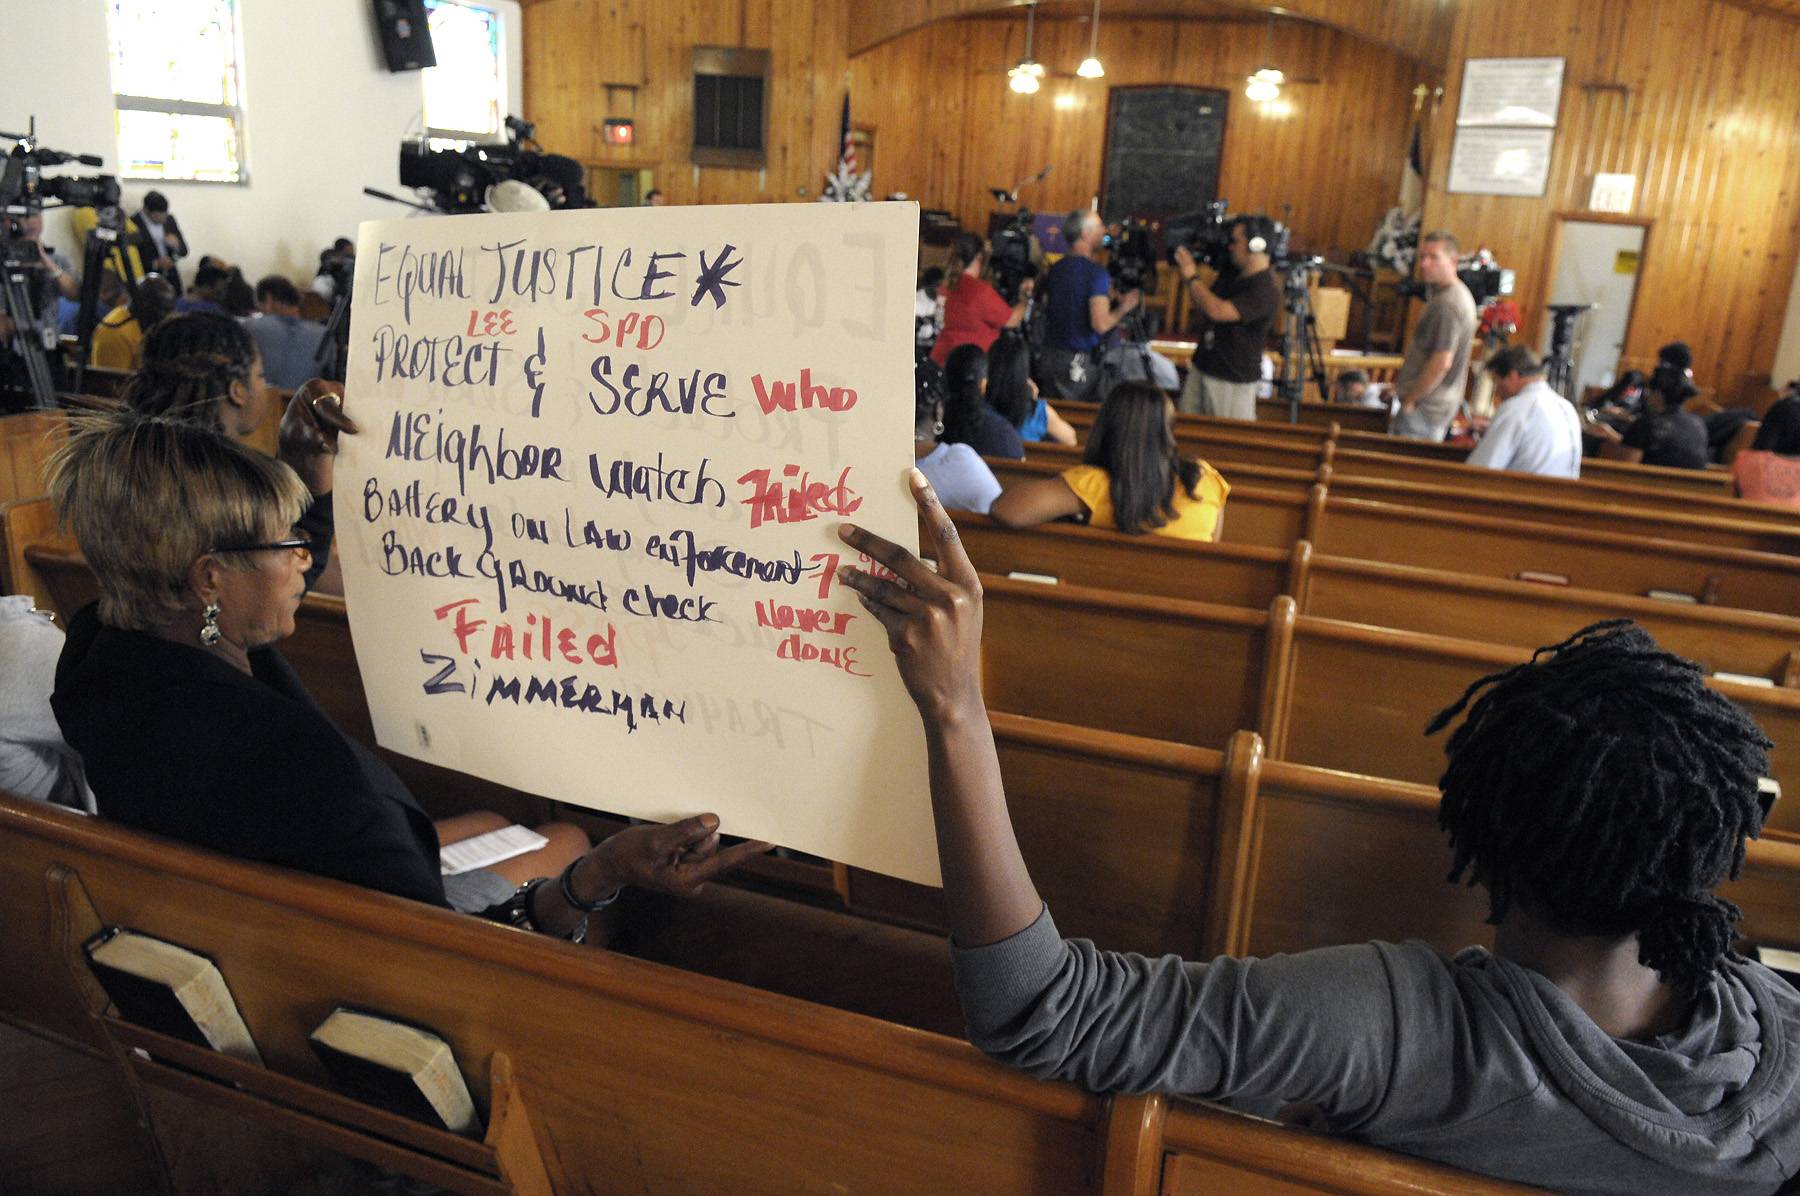 EQUAL JUSTICE*
LEE SPD
PROTECT & SERVE Who
NEighboR Watch FAiled
BAttERy on LAW enforcement
BACK GROUND check Never
done
FAilEd
ZiMMERMAN